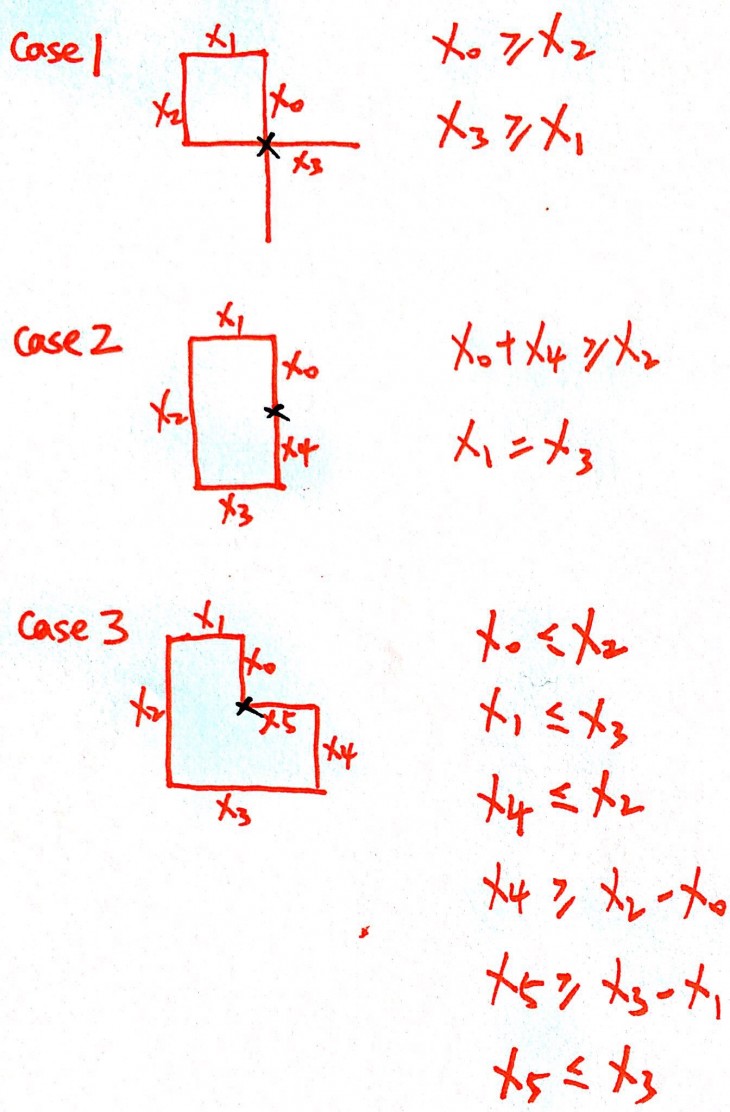 Case 1
X₁
X₀ ≥ X₂
X₂
X₀
X₃ ≥ X₁
X₃
Case 2
X₁
X₀ + X₄ ≥ X₂
X₀
X₂
X₄
X₁ = X₃
X₃
Case 3
X₁
X₀ ≤ X₂
X₀
X₂
X₅
X₁ ≤ X₃
X₄
X₃
X₄ ≤ X₂
X₄ ≥ X₂ - X₀
X₅ ≥ X₃ - X₁
X₅ ≤ X₃